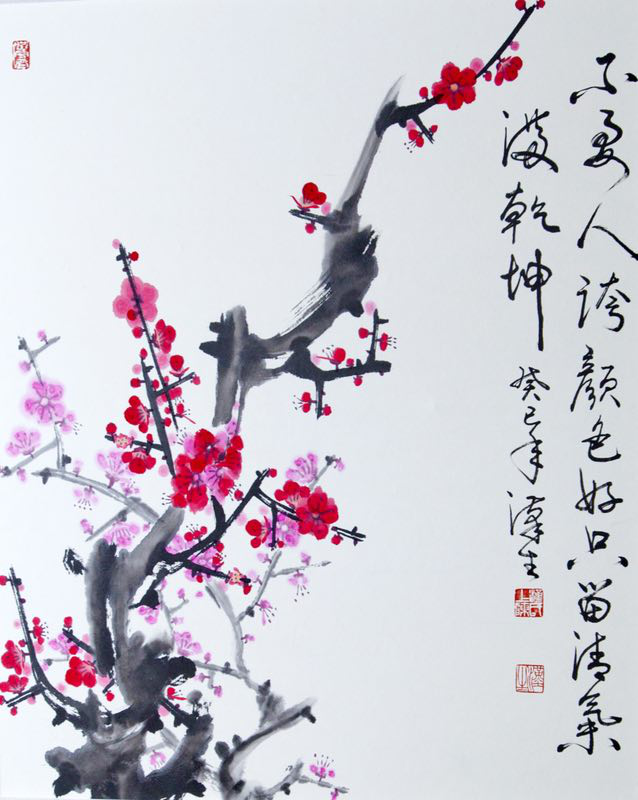 不要人誇顏色好只留清氣
滿乾坤 癸巳年